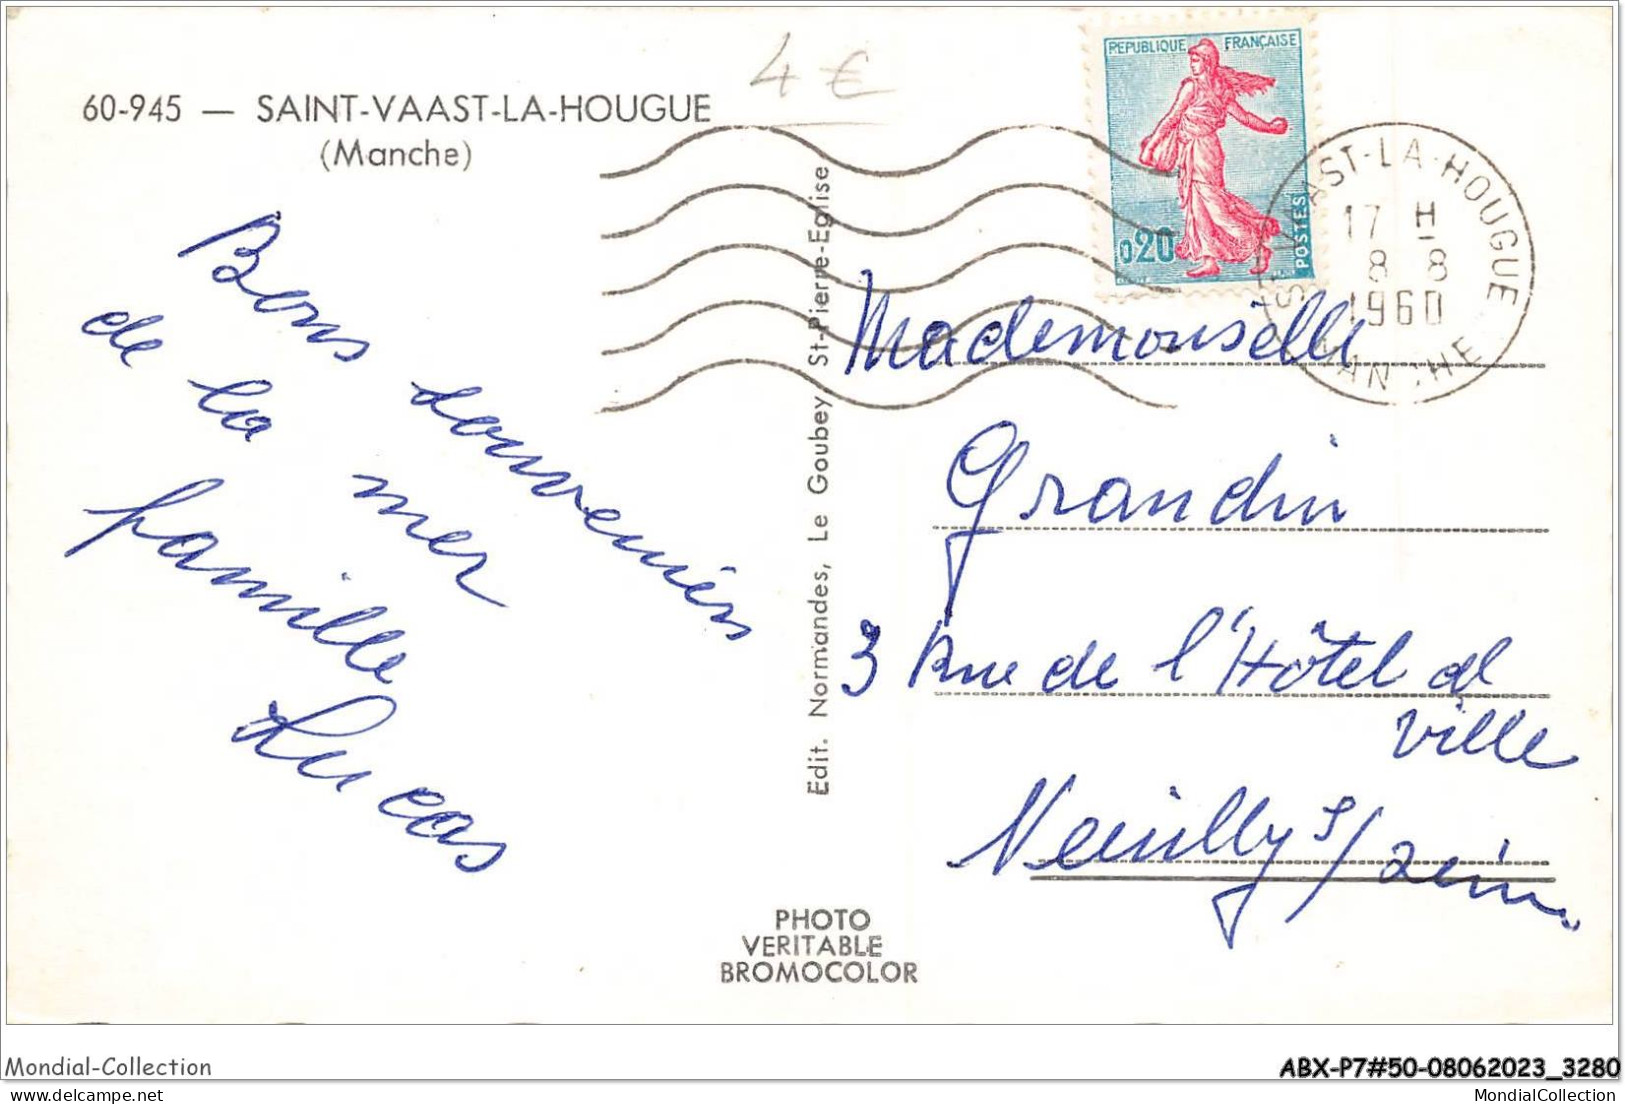 4 €
60-945 — SAINT-VAAST-LA-HOUGUE
(Manche)
REPUBLIQUE FRANÇAISE
0,20
POSTES
ST-VAAST-LA-HOUGUE
17 H
8 8
1960
MANCHE
Bons souvenirs
de la mer
famille
Lucas
Edit. Normandes, Le Goubey St-Pierre-Eglise
Mademoiselle
Grandin
3 Rue de l'Hôtel de
ville
Neuilly s/Seine
PHOTO
VERITABLE
BROMOCOLOR
Mondial-Collection
ABX-P7#50-08062023_3280
delcampe.net
MondialCollection